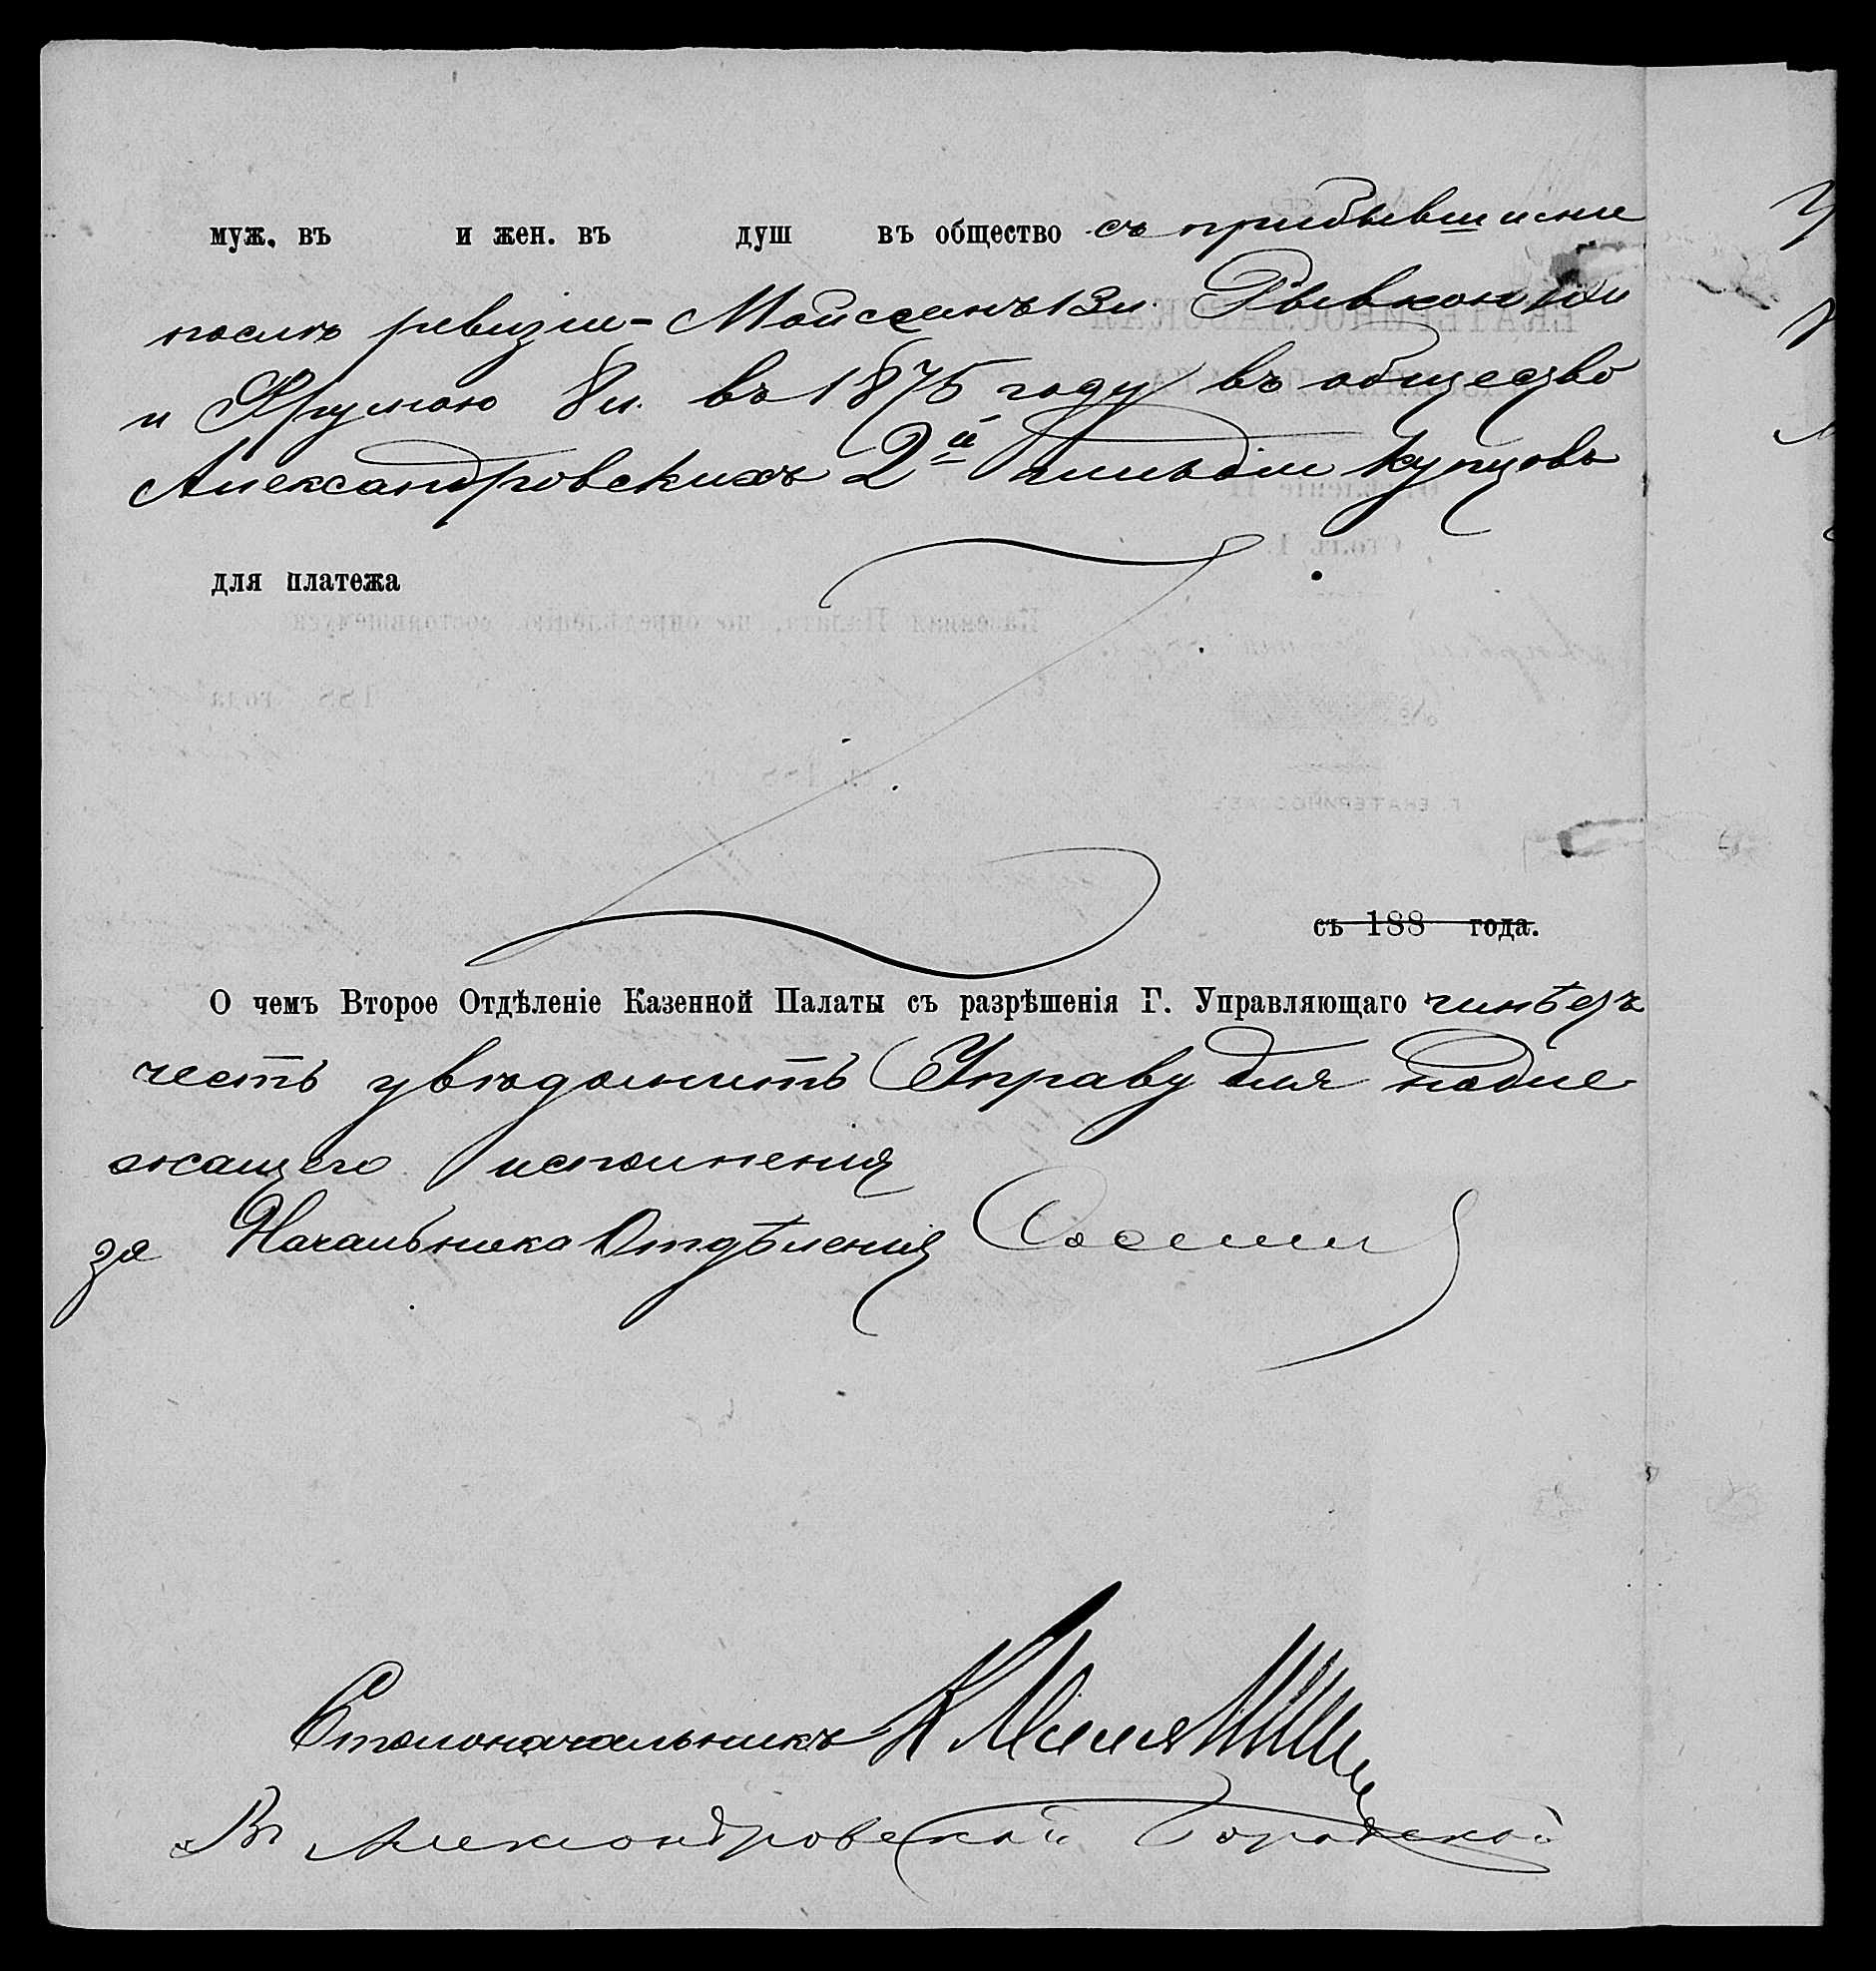 муж. въ и жен. въ душ въ общество съ прибывшими
послѣ ревизіи - Мойсеемъ 13 л. Рывкою 10 л.
и Фрумою 8 л. въ 1875 году въ общество
Александровскихъ 2й гильдіи купцовъ
для платежа
съ 188 года.
О чемъ Второе Отдѣленіе Казенной Палаты съ разрѣшенія Г. Управляющаго имѣетъ
честь увѣдомить Управу для надле
жащаго исполненія
за Начальника Отдѣленія
Столоначальникъ К.
Въ Александровской Городской